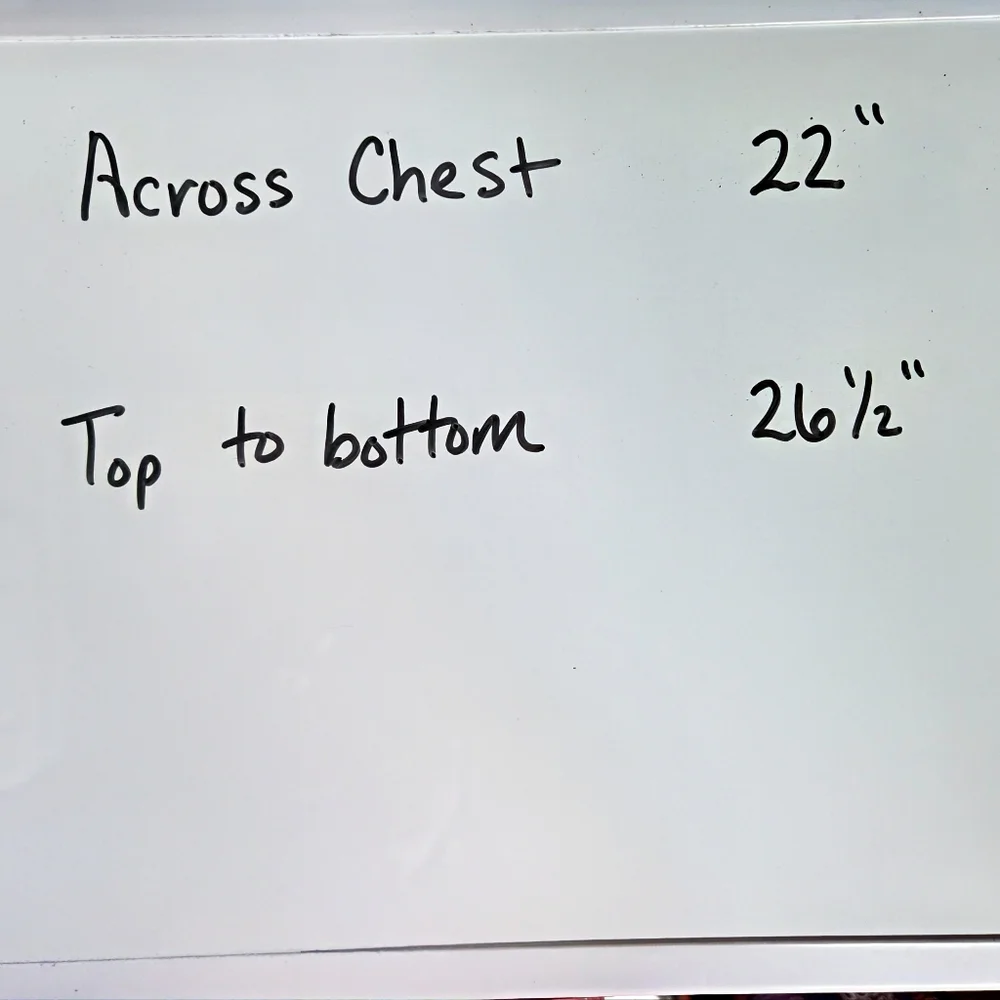 Across Chest 22"
Top to bottom 26 1/2"